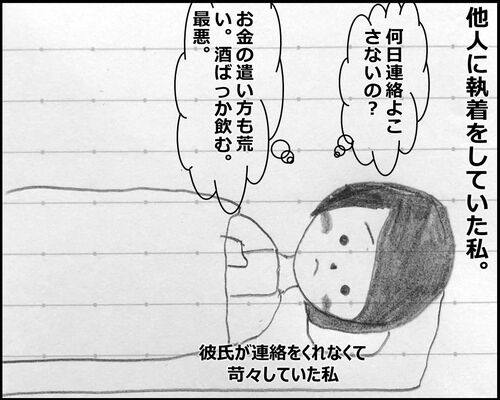 他人に執着をしていた私。
何日連絡よこ
さないの？
お金の遣い方も荒
い。酒ばっか飲む。
最悪。
彼氏が連絡をくれなくて
苛々していた私